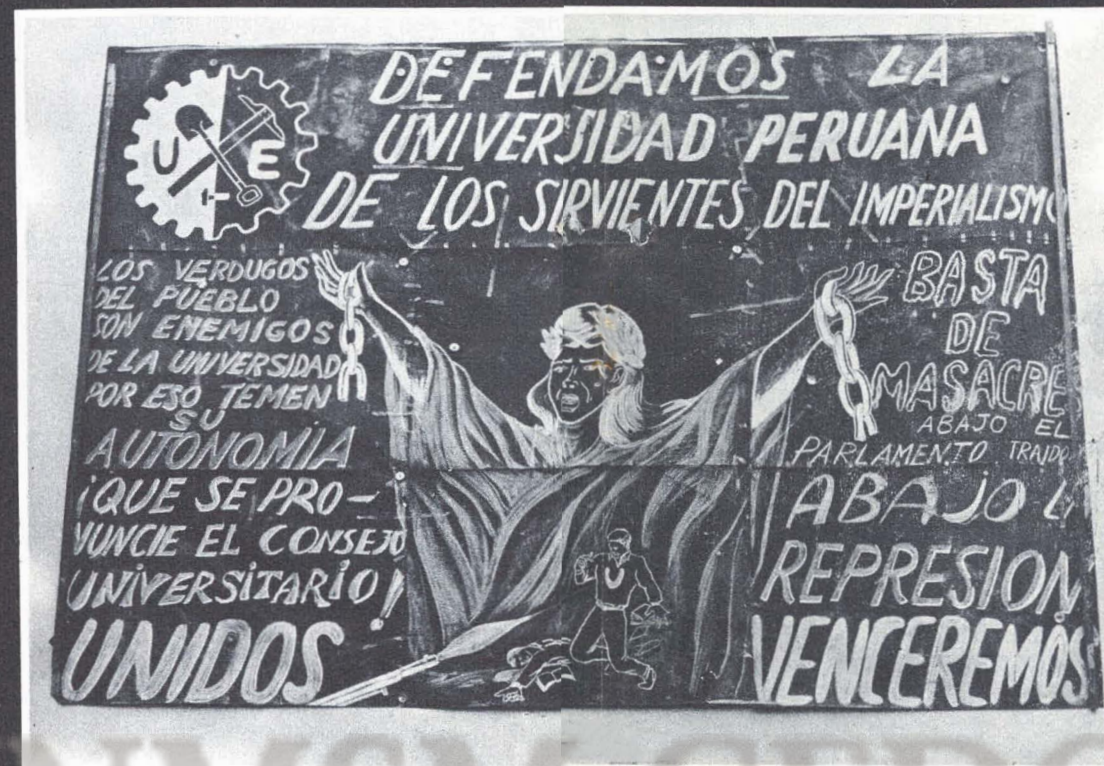 DEFENDAMOS LA
UNIVERSIDAD PERUANA
DE LOS SIRVIENTES DEL IMPERIALISMO
U E
LOS VERDUGOS
DEL PUEBLO
SON ENEMIGOS
DE LA UNIVERSIDAD
POR ESO TEMEN
SU
AUTONOMÍA
¡QUE SE PRO-
NUNCIE EL CONSEJO
UNIVERSITARIO!
UNIDOS
BASTA
DE
MASACRE
ABAJO EL
PARLAMENTO TRAIDO
ABAJO L
REPRESION
VENCEREMOS
U